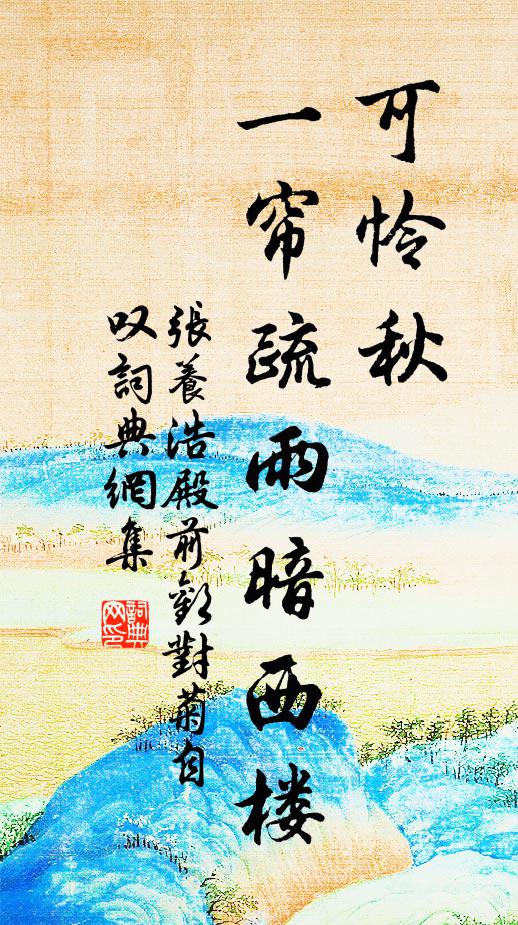 可怜秋
一帘疏雨暗西楼
張養浩殿前歡對菊自
叹詞典網集
詞典
网印